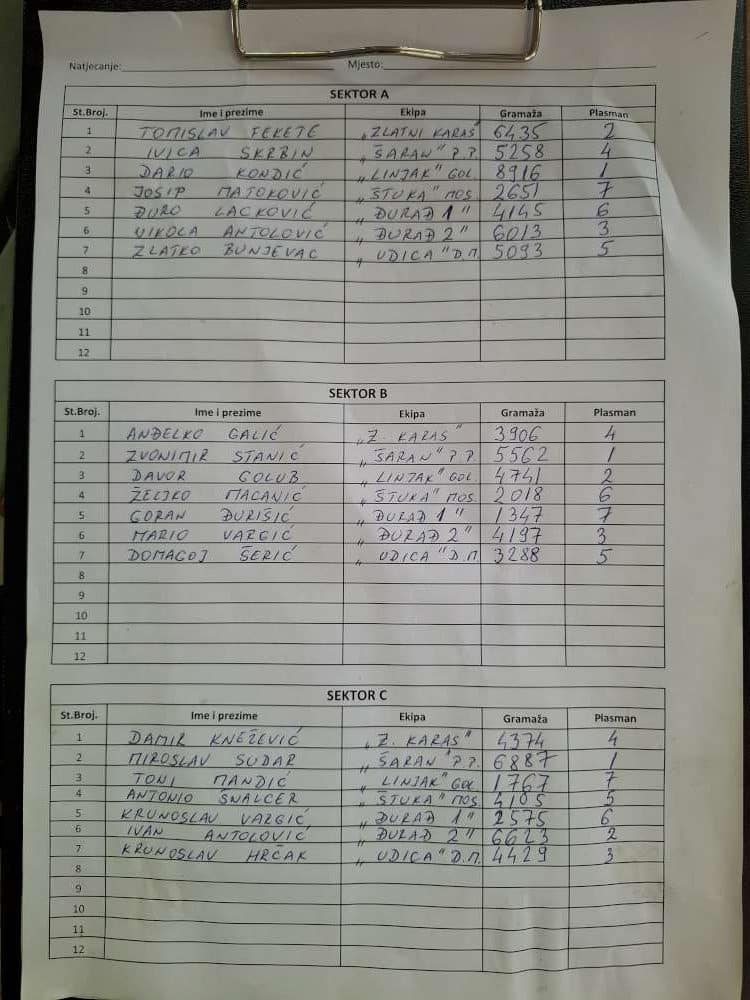 Natjecanje: Mjesto:
SEKTOR A
St.Broj. Ime i prezime Ekipa Gramaža Plasman
1 TOMISLAV FEKETE „ZLATNI KARAS" 6435 2
2 IVICA SKRBIN „ŠARAN" P.P. 5258 4
3 DARIO KONDIĆ „LINJAK" GOL. 8916 1
4 JOSIP MATOKOVIĆ „ŠTUKA" MOS. 2651 7
5 ĐURO LACKOVIĆ „ĐURAĐ 1" 4145 6
6 NIKOLA ANTOLOVIĆ „ĐURAĐ 2" 6013 3
7 ZLATKO BUNJEVAC „UDICA" D.M. 5093 5
8
9
10
11
12
SEKTOR B
St.Broj. Ime i prezime Ekipa Gramaža Plasman
1 ANĐELKO GALIĆ „Z. KARAS" 3906 4
2 ZVONIMIR STANIĆ „ŠARAN" P.P. 5562 1
3 DAVOR GOLUB „LINJAK" GOL. 4741 2
4 ŽELJKO MACANIĆ „ŠTUKA" MOS. 2018 6
5 GORAN ĐURIŠIĆ „ĐURAĐ 1" 1347 7
6 MARIO VARGIĆ „ĐURAĐ 2" 4197 3
7 DOMAGOJ ŠERIĆ „UDICA" D.M. 3288 5
8
9
10
11
12
SEKTOR C
St.Broj. Ime i prezime Ekipa Gramaža Plasman
1 DAMIR KNEŽEVIĆ „Z. KARAS" 4374 4
2 MIROSLAV SUDAR „ŠARAN" P.P. 6887 1
3 TONI MANDIĆ „LINJAK" GOL. 1767 7
4 ANTONIO ŠNALCER „ŠTUKA" MOS. 4105 5
5 KRUNOSLAV VARGIĆ „ĐURAĐ 1" 2575 6
6 IVAN ANTOLOVIĆ „ĐURAĐ 2" 6623 2
7 KRUNOSLAV HRČAK „UDICA" D.M. 4429 3
8
9
10
11
12